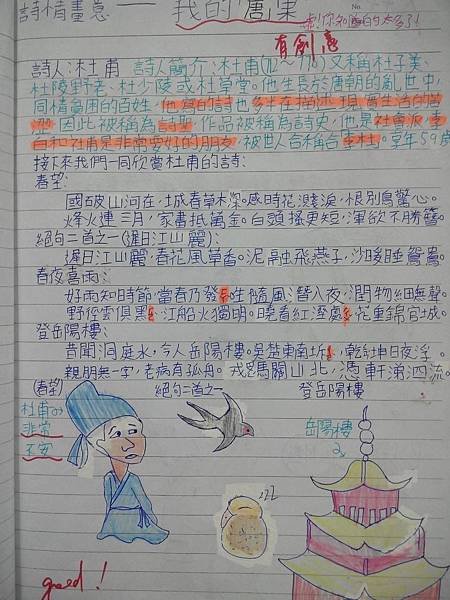 詩情畫意——我的"唐"果
No.
有創意
詩人:杜甫 詩人簡介:杜甫(712~770)又稱杜子美、
杜陵野老、杜少陵或杜草堂。他生長於唐朝的亂世中,
同情貧困的百姓,他寫的詩也多半在描述現實生活的
因此被稱為詩聖,作品被稱為詩史,他是社會派,李
白和杜甫是非常要好的朋友,被世人合稱
享年59歲
接下來我們一同欣賞杜甫的詩:
春望:
國破山河在,城春草木深。感時花濺淚,恨別鳥驚心。
烽火連三月,家書抵萬金。白頭搔更短,渾欲不勝簪。
絕句二首之一(遲日江山麗):
遲日江山麗,春花風草香。泥融飛燕子,沙暖睡鴛鴦。
春夜喜雨:
好雨知時節,當春乃發生。隨風潛入夜,潤物細無聲。
野徑雲俱黑,江船火獨明。曉看紅溼處,花重錦官城。
登岳陽樓:
昔聞洞庭水,今人岳陽樓。吳楚東南坼,乾坤日夜浮。
親朋無一字,老病有孤舟。戎馬關山北,憑軒涕泗流。
(春望)
絕句二首之一
登岳陽樓
杜甫
非常
不安
岳陽樓
zzz
good!